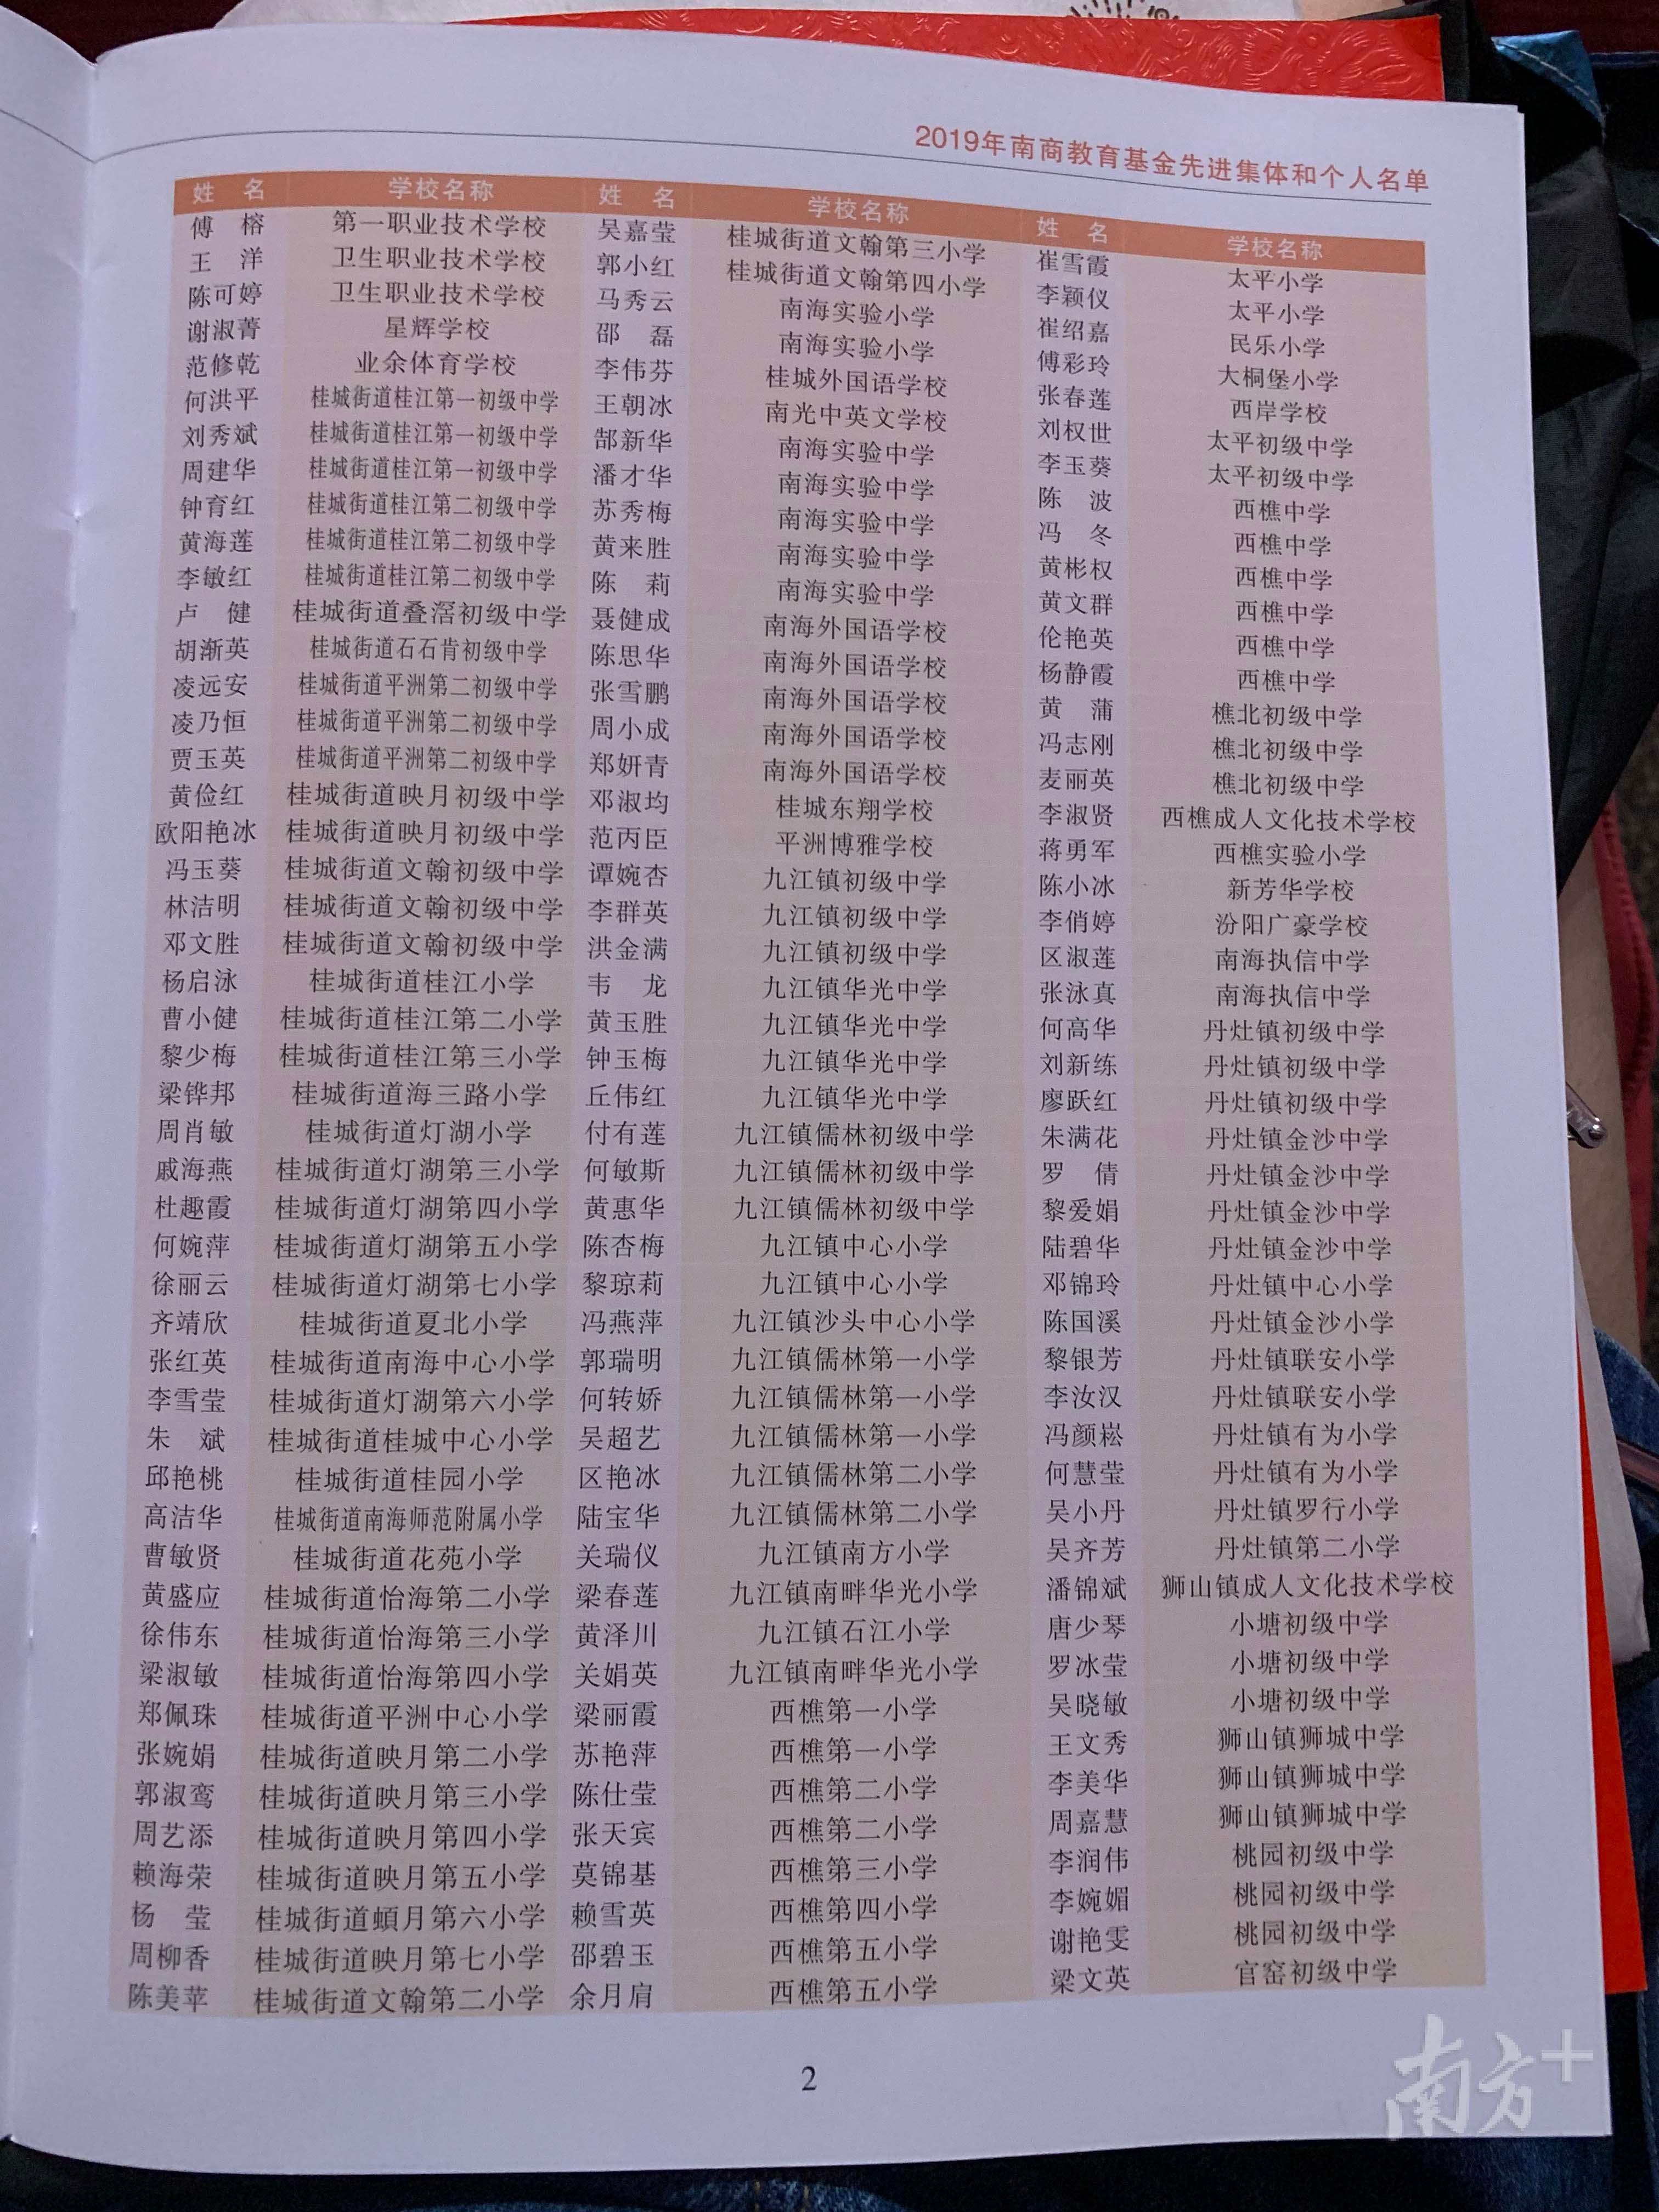 2019年南商教育基金先进集体和个人名单
姓 名 学校名称 姓 名 学校名称 姓 名 学校名称
傅 榕 第一职业技术学校 吴嘉莹 桂城街道文翰第三小学 崔雪霞 太平小学
王 洋 卫生职业技术学校 郭小红 桂城街道文翰第四小学 李颖仪 太平小学
陈可婷 卫生职业技术学校 马秀云 南海实验小学 崔绍嘉 民乐小学
谢淑菁 星辉学校 邵 磊 南海实验小学 傅彩玲 大桐堡小学
范修乾 业余体育学校 李伟芬 桂城外国语学校 张春莲 西岸学校
何洪平 桂城街道桂江第一初级中学 王朝冰 南光中英文学校 刘权世 太平初级中学
刘秀斌 桂城街道桂江第一初级中学 郜新华 南海实验中学 李玉葵 太平初级中学
周建华 桂城街道桂江第一初级中学 潘才华 南海实验中学 陈 波 西樵中学
钟育红 桂城街道桂江第二初级中学 苏秀梅 南海实验中学 冯 冬 西樵中学
黄海莲 桂城街道桂江第二初级中学 黄来胜 南海实验中学 黄彬权 西樵中学
李敏红 桂城街道桂江第二初级中学 陈 莉 南海实验中学 黄文群 西樵中学
卢 健 桂城街道叠滘初级中学 聂健成 南海外国语学校 伦艳英 西樵中学
胡渐英 桂城街道石石肯初级中学 陈思华 南海外国语学校 杨静霞 西樵中学
凌远安 桂城街道平洲第二初级中学 张雪鹏 南海外国语学校 黄 蒲 樵北初级中学
凌乃恒 桂城街道平洲第二初级中学 周小成 南海外国语学校 冯志刚 樵北初级中学
贾玉英 桂城街道平洲第二初级中学 郑妍青 南海外国语学校 麦丽英 樵北初级中学
黄俭红 桂城街道映月初级中学 邓淑均 桂城东翔学校 李淑贤 西樵成人文化技术学校
欧阳艳冰 桂城街道映月初级中学 范丙臣 平洲博雅学校 蒋勇军 西樵实验小学
冯玉葵 桂城街道文翰初级中学 谭婉杏 九江镇初级中学 陈小冰 新芳华学校
林洁明 桂城街道文翰初级中学 李群英 九江镇初级中学 李俏婷 汾阳广豪学校
邓文胜 桂城街道文翰初级中学 洪金满 九江镇初级中学 区淑莲 南海执信中学
杨启泳 桂城街道桂江小学 韦 龙 九江镇华光中学 张泳真 南海执信中学
曹小健 桂城街道桂江第二小学 黄玉胜 九江镇华光中学 何高华 丹灶镇初级中学
黎少梅 桂城街道桂江第三小学 钟玉梅 九江镇华光中学 刘新练 丹灶镇初级中学
梁铧邦 桂城街道海三路小学 丘伟红 九江镇华光中学 廖跃红 丹灶镇初级中学
周肖敏 桂城街道灯湖小学 付有莲 九江镇儒林初级中学 朱满花 丹灶镇金沙中学
戚海燕 桂城街道灯湖第三小学 何敏斯 九江镇儒林初级中学 罗 倩 丹灶镇金沙中学
杜趣霞 桂城街道灯湖第四小学 黄惠华 九江镇儒林初级中学 黎爱娟 丹灶镇金沙中学
何婉萍 桂城街道灯湖第五小学 陈杏梅 九江镇中心小学 陆碧华 丹灶镇金沙中学
徐丽云 桂城街道灯湖第七小学 黎琼莉 九江镇中心小学 邓锦玲 丹灶镇中心小学
齐靖欣 桂城街道夏北小学 冯燕萍 九江镇沙头中心小学 陈国溪 丹灶镇金沙小学
张红英 桂城街道南海中心小学 郭瑞明 九江镇儒林第一小学 黎银芳 丹灶镇联安小学
李雪莹 桂城街道灯湖第六小学 何转娇 九江镇儒林第一小学 李汝汉 丹灶镇联安小学
朱 斌 桂城街道桂城中心小学 吴超艺 九江镇儒林第一小学 冯颜崧 丹灶镇有为小学
邱艳桃 桂城街道桂园小学 区艳冰 九江镇儒林第二小学 何慧莹 丹灶镇有为小学
高洁华 桂城街道南海师范附属小学 陆宝华 九江镇儒林第二小学 吴小丹 丹灶镇罗行小学
曹敏贤 桂城街道花苑小学 关瑞仪 九江镇南方小学 吴齐芳 丹灶镇第二小学
黄盛应 桂城街道怡海第二小学 梁春莲 九江镇南畔华光小学 潘锦斌 狮山镇成人文化技术学校
徐伟东 桂城街道怡海第三小学 黄泽川 九江镇石江小学 唐少琴 小塘初级中学
梁淑敏 桂城街道怡海第四小学 关娟英 九江镇南畔华光小学 罗冰莹 小塘初级中学
郑佩珠 桂城街道平洲中心小学 梁丽霞 西樵第一小学 吴晓敏 小塘初级中学
张婉娟 桂城街道映月第二小学 苏艳萍 西樵第一小学 王文秀 狮山镇狮城中学
郭淑鸾 桂城街道映月第三小学 陈仕莹 西樵第二小学 李美华 狮山镇狮城中学
周艺添 桂城街道映月第四小学 张天宾 西樵第二小学 周嘉慧 狮山镇狮城中学
赖海荣 桂城街道映月第五小学 莫锦基 西樵第三小学 李润伟 桃园初级中学
杨 莹 桂城街道蝢月第六小学 赖雪英 西樵第四小学 李婉媚 桃园初级中学
周柳香 桂城街道映月第七小学 邵碧玉 西樵第五小学 谢艳雯 桃园初级中学
陈美苹 桂城街道文翰第二小学 余月肩 西樵第五小学 梁文英 官窑初级中学
2
南方+